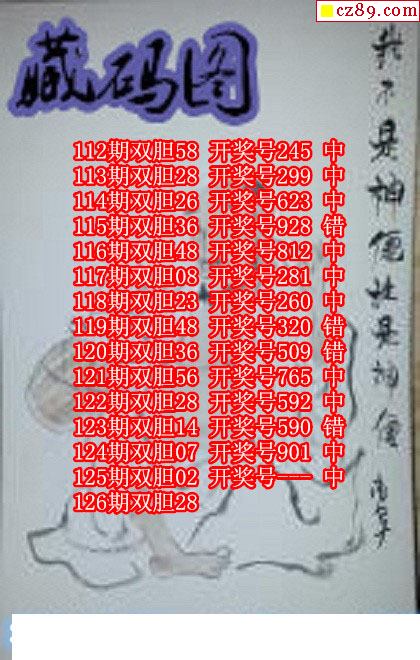 cz89.com
藏码图
112期双胆58 开奖号245 中
113期双胆28 开奖号299 中
114期双胆26 开奖号623 中
115期双胆36 开奖号928 错
116期双胆48 开奖号812 中
117期双胆08 开奖号281 中
118期双胆23 开奖号260 中
119期双胆48 开奖号320 错
120期双胆36 开奖号509 错
121期双胆56 开奖号765 中
122期双胆28 开奖号592 中
123期双胆14 开奖号590 错
124期双胆07 开奖号901 中
125期双胆02 开奖号--- 中
126期双胆28
我不是神仙 是神仙